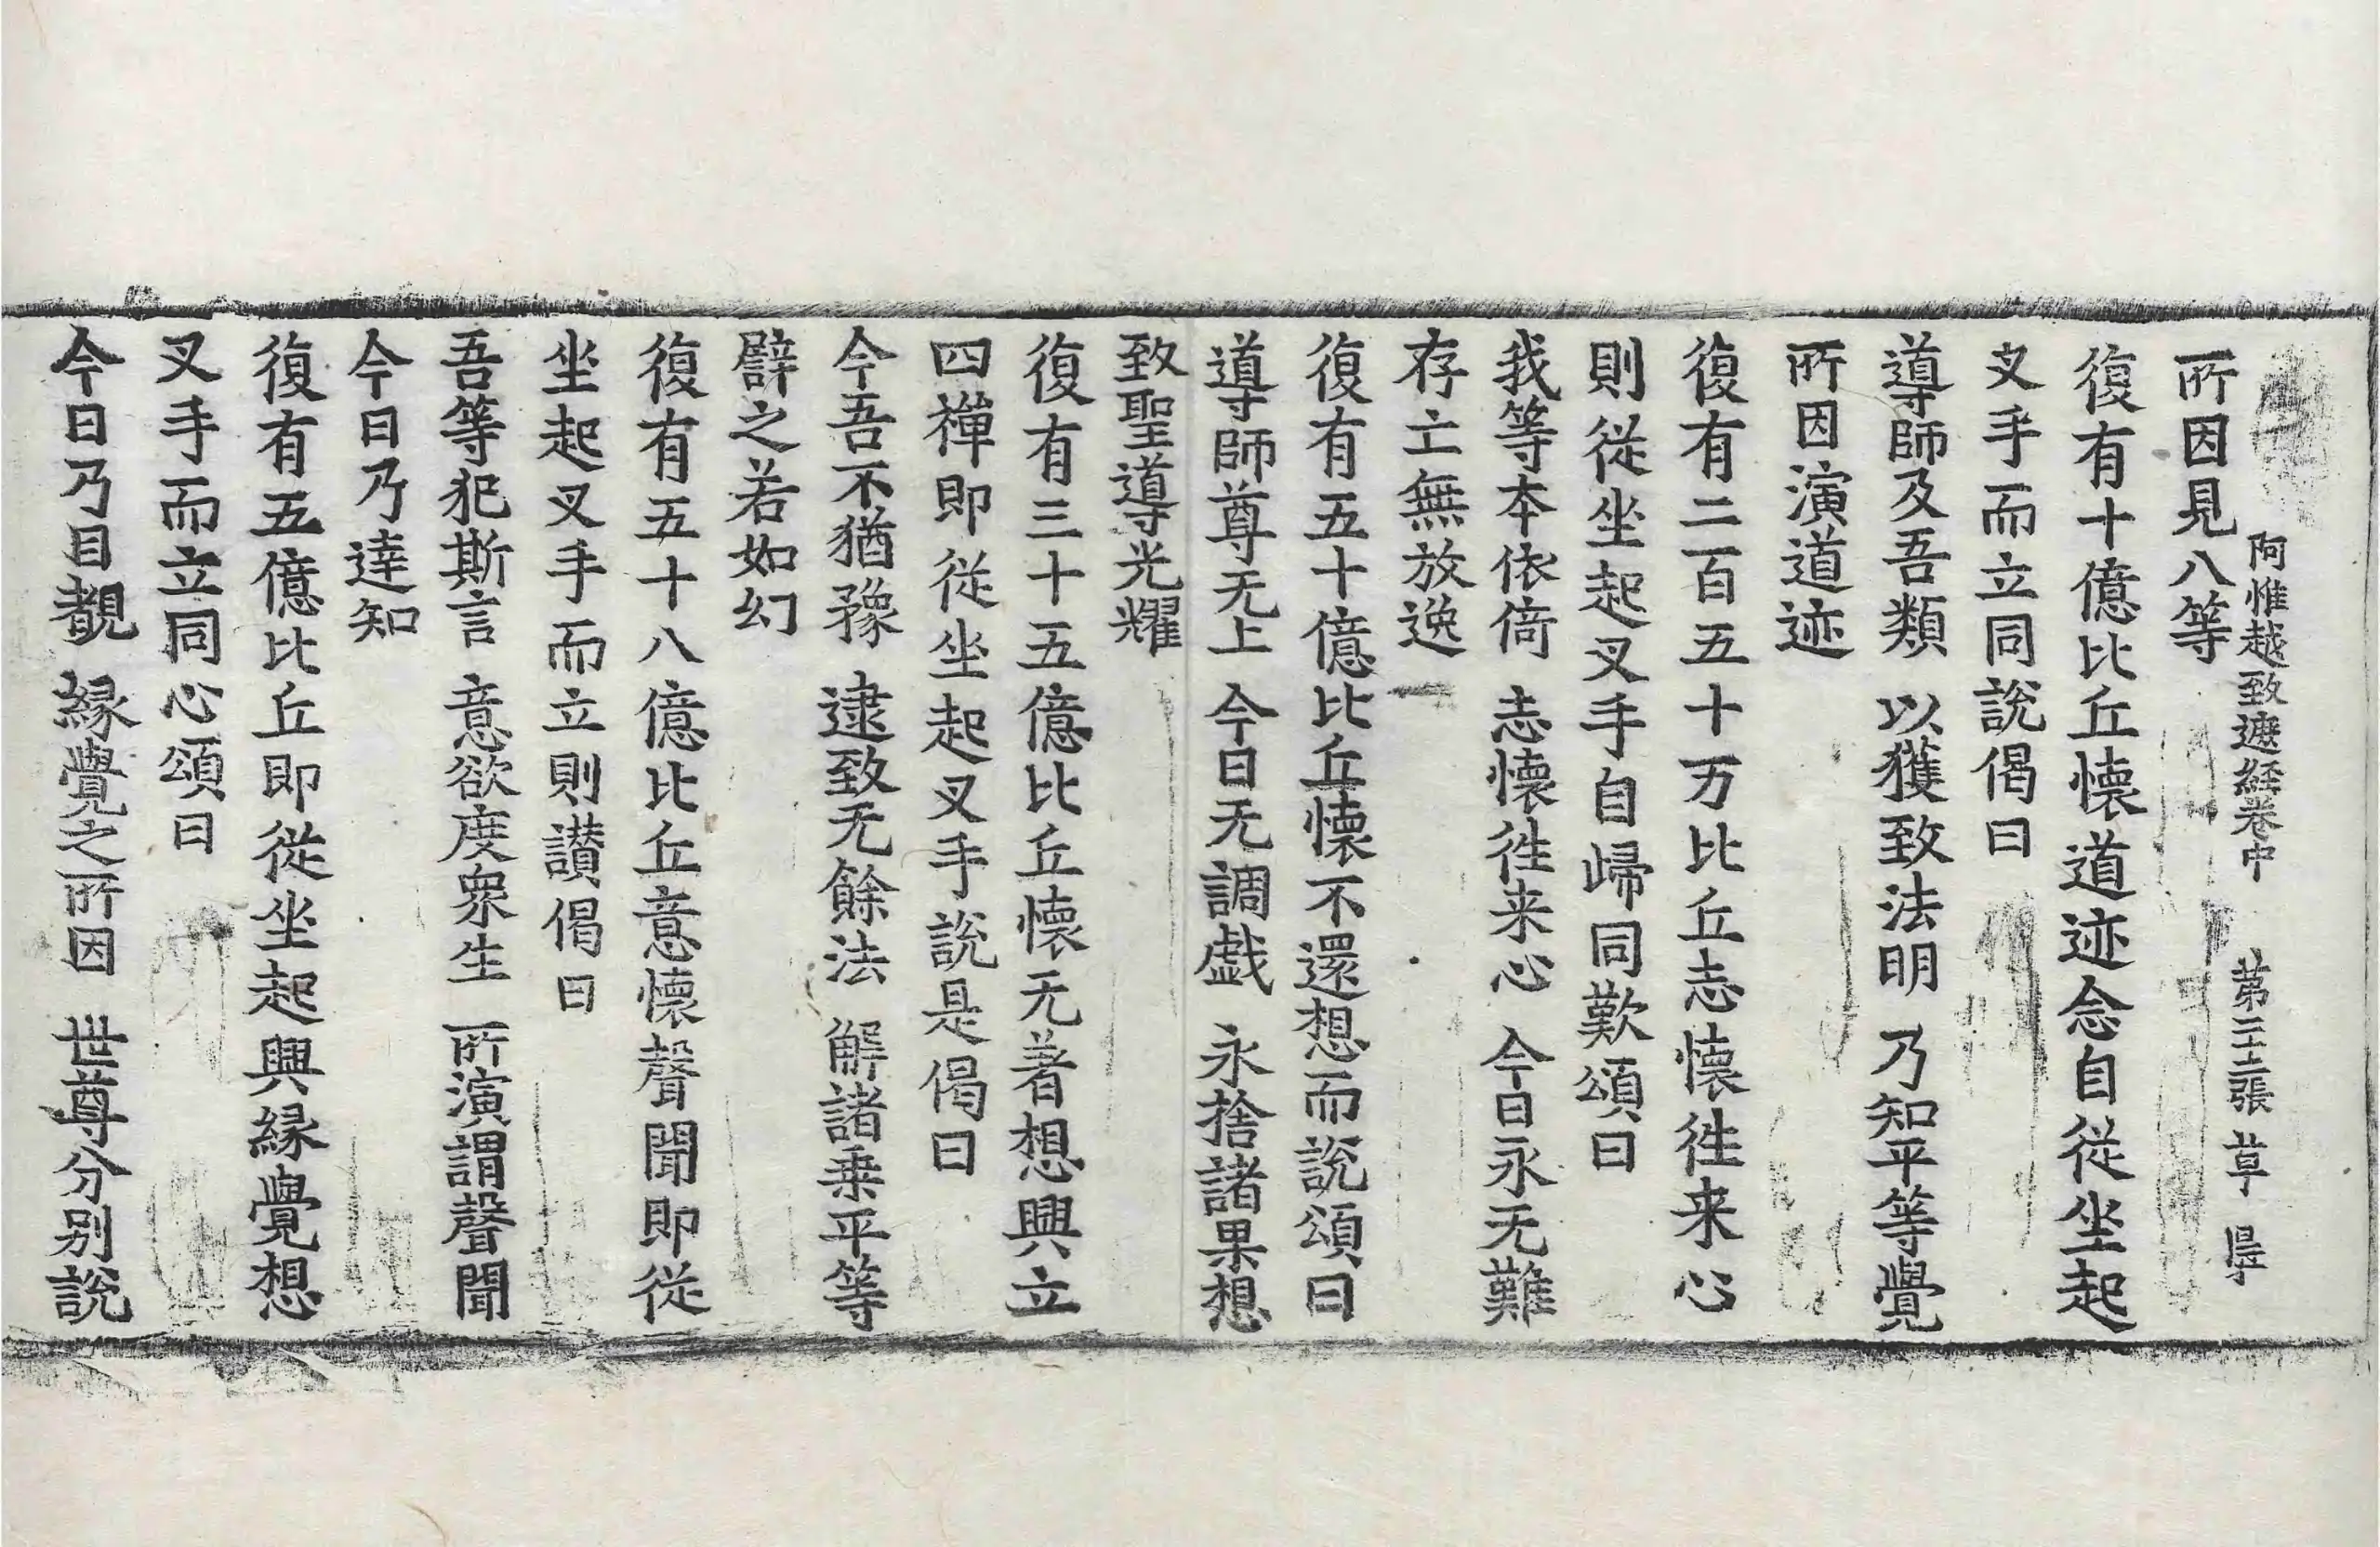 阿惟越致遮経卷中 第 張 草
所因見八等
復有十億比丘懷道迹念自從坐起
叉手而立同說偈曰
導師及吾類 以獲致法明 乃知平等覺
所因演道迹
復有二百五十万比丘志懷往来心
則從坐起叉手自歸同歎頌曰
我等本依倚 志懷往来心 今日永无難
存立無放逸
復有五十億比丘懷不還想而說頌曰
導師尊无上 今日无調戱 永捨諸果想
致聖導光耀
復有三十五億比丘懷无著想興立
四禪即從坐起叉手說是偈曰
今吾不猶豫 逮致无餘法 解諸乗平等
譬之若如幻
復有五十八億比丘意懷聲聞即從
坐起叉手而立則讃偈曰
吾等犯斯言 意欲度衆生 所演謂聲聞
今日乃達知
復有五億比丘即從坐起興縁覺想
叉手而立同心頌曰
今日乃目覩 縁覺之所因 世尊分别說